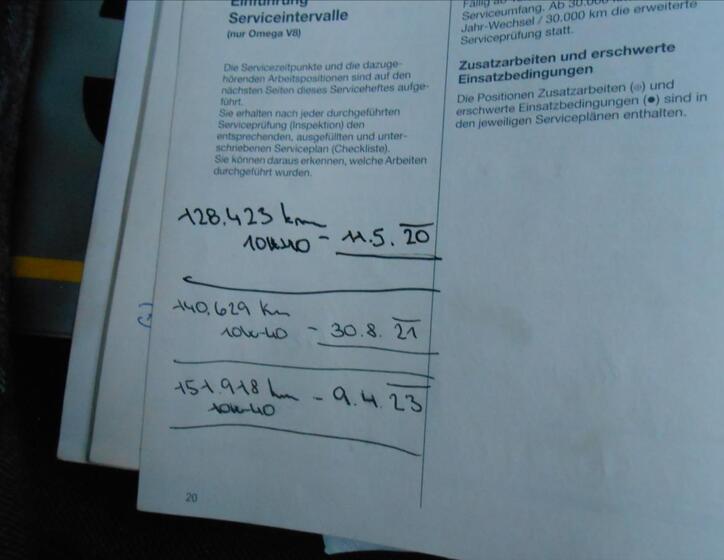 Einführung
Serviceintervalle
(nur Omega V8)
Die Servicezeitpunkte und die dazuge-
hörenden Arbeitspositionen sind auf den
nächsten Seiten dieses Serviceheftes aufge-
führt.
Sie erhalten nach jeder durchgeführten
Serviceprüfung (Inspektion) den
entsprechenden, ausgefüllten und unter-
schriebenen Serviceplan (Checkliste).
Sie können daraus erkennen, welche Arbeiten
durchgeführt wurden.
128.423 km
10W40 - 11.5.20
140.629 km
10W-40 - 30.8.21
151.918 km - 9.4.23
10W-40
20
Fällig ab
Serviceumfang. Ab 30.000
Jahr-Wechsel / 30.000 km die erweiterte
Serviceprüfung statt.
Zusatzarbeiten und erschwerte
Einsatzbedingungen
Die Positionen Zusatzarbeiten (◎) und
erschwerte Einsatzbedingungen (●) sind in
den jeweiligen Serviceplänen enthalten.